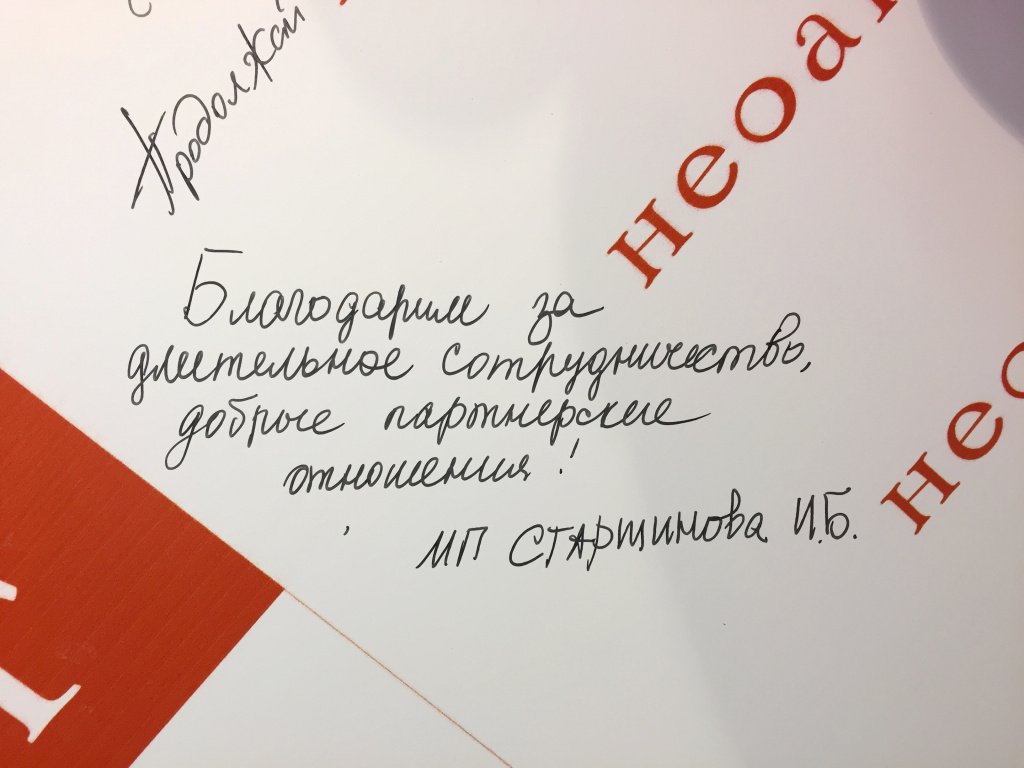 Продолжай
неоа
Благодарим за
длительное сотрудничество,
добрые партнерские
отношения!
МП Старшинова И.Б.
нео